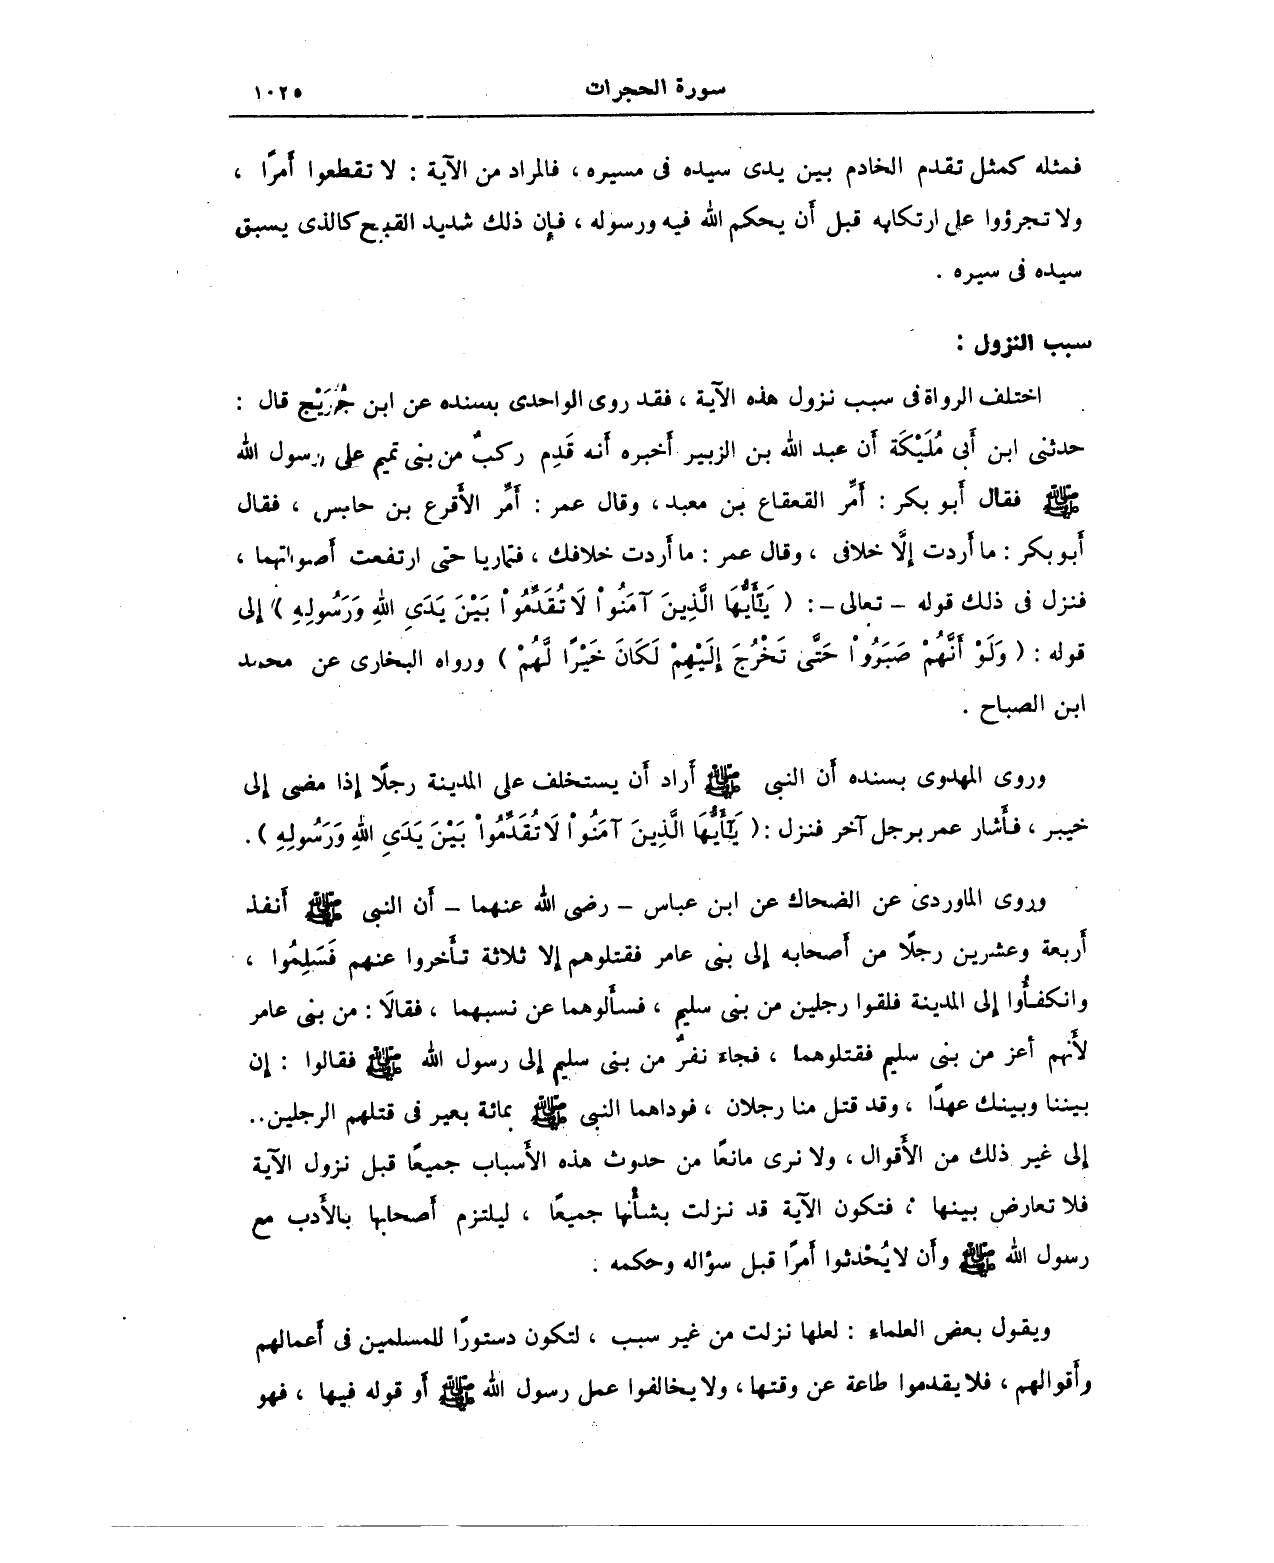 سورة الحجرات ١٠٢٥
فمثله كمثل تقدم الخادم بين يدى سيده فى مسيره ، فالمراد من الآية : لا تقطعوا أمرًا ،
ولا تجرؤوا على ارتكابه قبل أن يحكم الله فيه ورسوله ، فإن ذلك شديد القبح كالذى يسبق
سيده فى سيره .
سبب النزول :
اختلف الرواة فى سبب نزول هذه الآية ، فقد روى الواحدى بسنده عن ابن جُرَيْج قال :
حدثنى ابن أبى مُلَيْكَة أن عبد الله بن الزبير أخبره أنه قَدِم ركبٌ من بنى تميم على رسول الله
ﷺ فقال أبو بكر : أمِّر القعقاع بن معبد ، وقال عمر : أمِّر الأقرع بن حابس ، فقال
أبو بكر : ما أردت إلَّا خلافى ، وقال عمر : ما أردت خلافك ، فتماريا حتى ارتفعت أصواتهما ،
فنزل فى ذلك قوله – تعالى –: ( يَـٰٓأَيُّهَا الَّذِينَ آمَنُواْ لَا تُقَدِّمُواْ بَيْنَ يَدَىِ اللهِ وَرَسُولِهِ ) إلى
قوله : ( وَلَوْ أَنَّهُمْ صَبَرُواْ حَتَّى تَخْرُجَ إِلَيْهِمْ لَكَانَ خَيْرًا لَّهُمْ ) ورواه البخارى عن محمد
ابن الصباح .
وروى المهدوى بسنده أن النبى ﷺ أراد أن يستخلف على المدينة رجلًا إذا مضى إلى
خيبر ، فأشار عمر برجل آخر فنزل : ( يَـٰٓأَيُّهَا الَّذِينَ آمَنُواْ لَا تُقَدِّمُواْ بَيْنَ يَدَىِ اللهِ وَرَسُولِهِ ) .
وروى الماوردى عن الضحاك عن ابن عباس – رضى الله عنهما – أن النبى ﷺ أنفذ
أربعة وعشرين رجلًا من أصحابه إلى بنى عامر فقتلوهم إلا ثلاثة تأخروا عنهم فَسَلِمُوا ،
وانكفأُوا إلى المدينة فلقوا رجلين من بنى سليم ، فسألوهما عن نسبهما ، فقالَا : من بنى عامر
لأَنهم أعز من بنى سليم فقتلوهما ، فجاء نفرٌ من بنى سليم إلى رسول الله ﷺ فقالوا : إن
بيننا وبينك عهدًا ، وقد قتل منا رجلان ، فوداهما النبى ﷺ بمائة بعير فى قتلهم الرجلين..
إلى غير ذلك من الأقوال ، ولا نرى مانعًا من حدوث هذه الأسباب جميعًا قبل نزول الآية
فلا تعارض بينها ؛ فتكون الآية قد نزلت بشأنها جميعًا ، ليلتزم أصحابها بالأدب مع
رسول الله ﷺ وأن لا يُحْدثوا أمرًا قبل سؤاله وحكمه .
ويقول بعض العلماء : لعلها نزلت من غير سبب ، لتكون دستورًا للمسلمين فى أعمالهم
وأقوالهم ، فلا يقدموا طاعة عن وقتها ، ولا يخالفوا عمل رسول الله ﷺ أو قوله فيها ، فهو